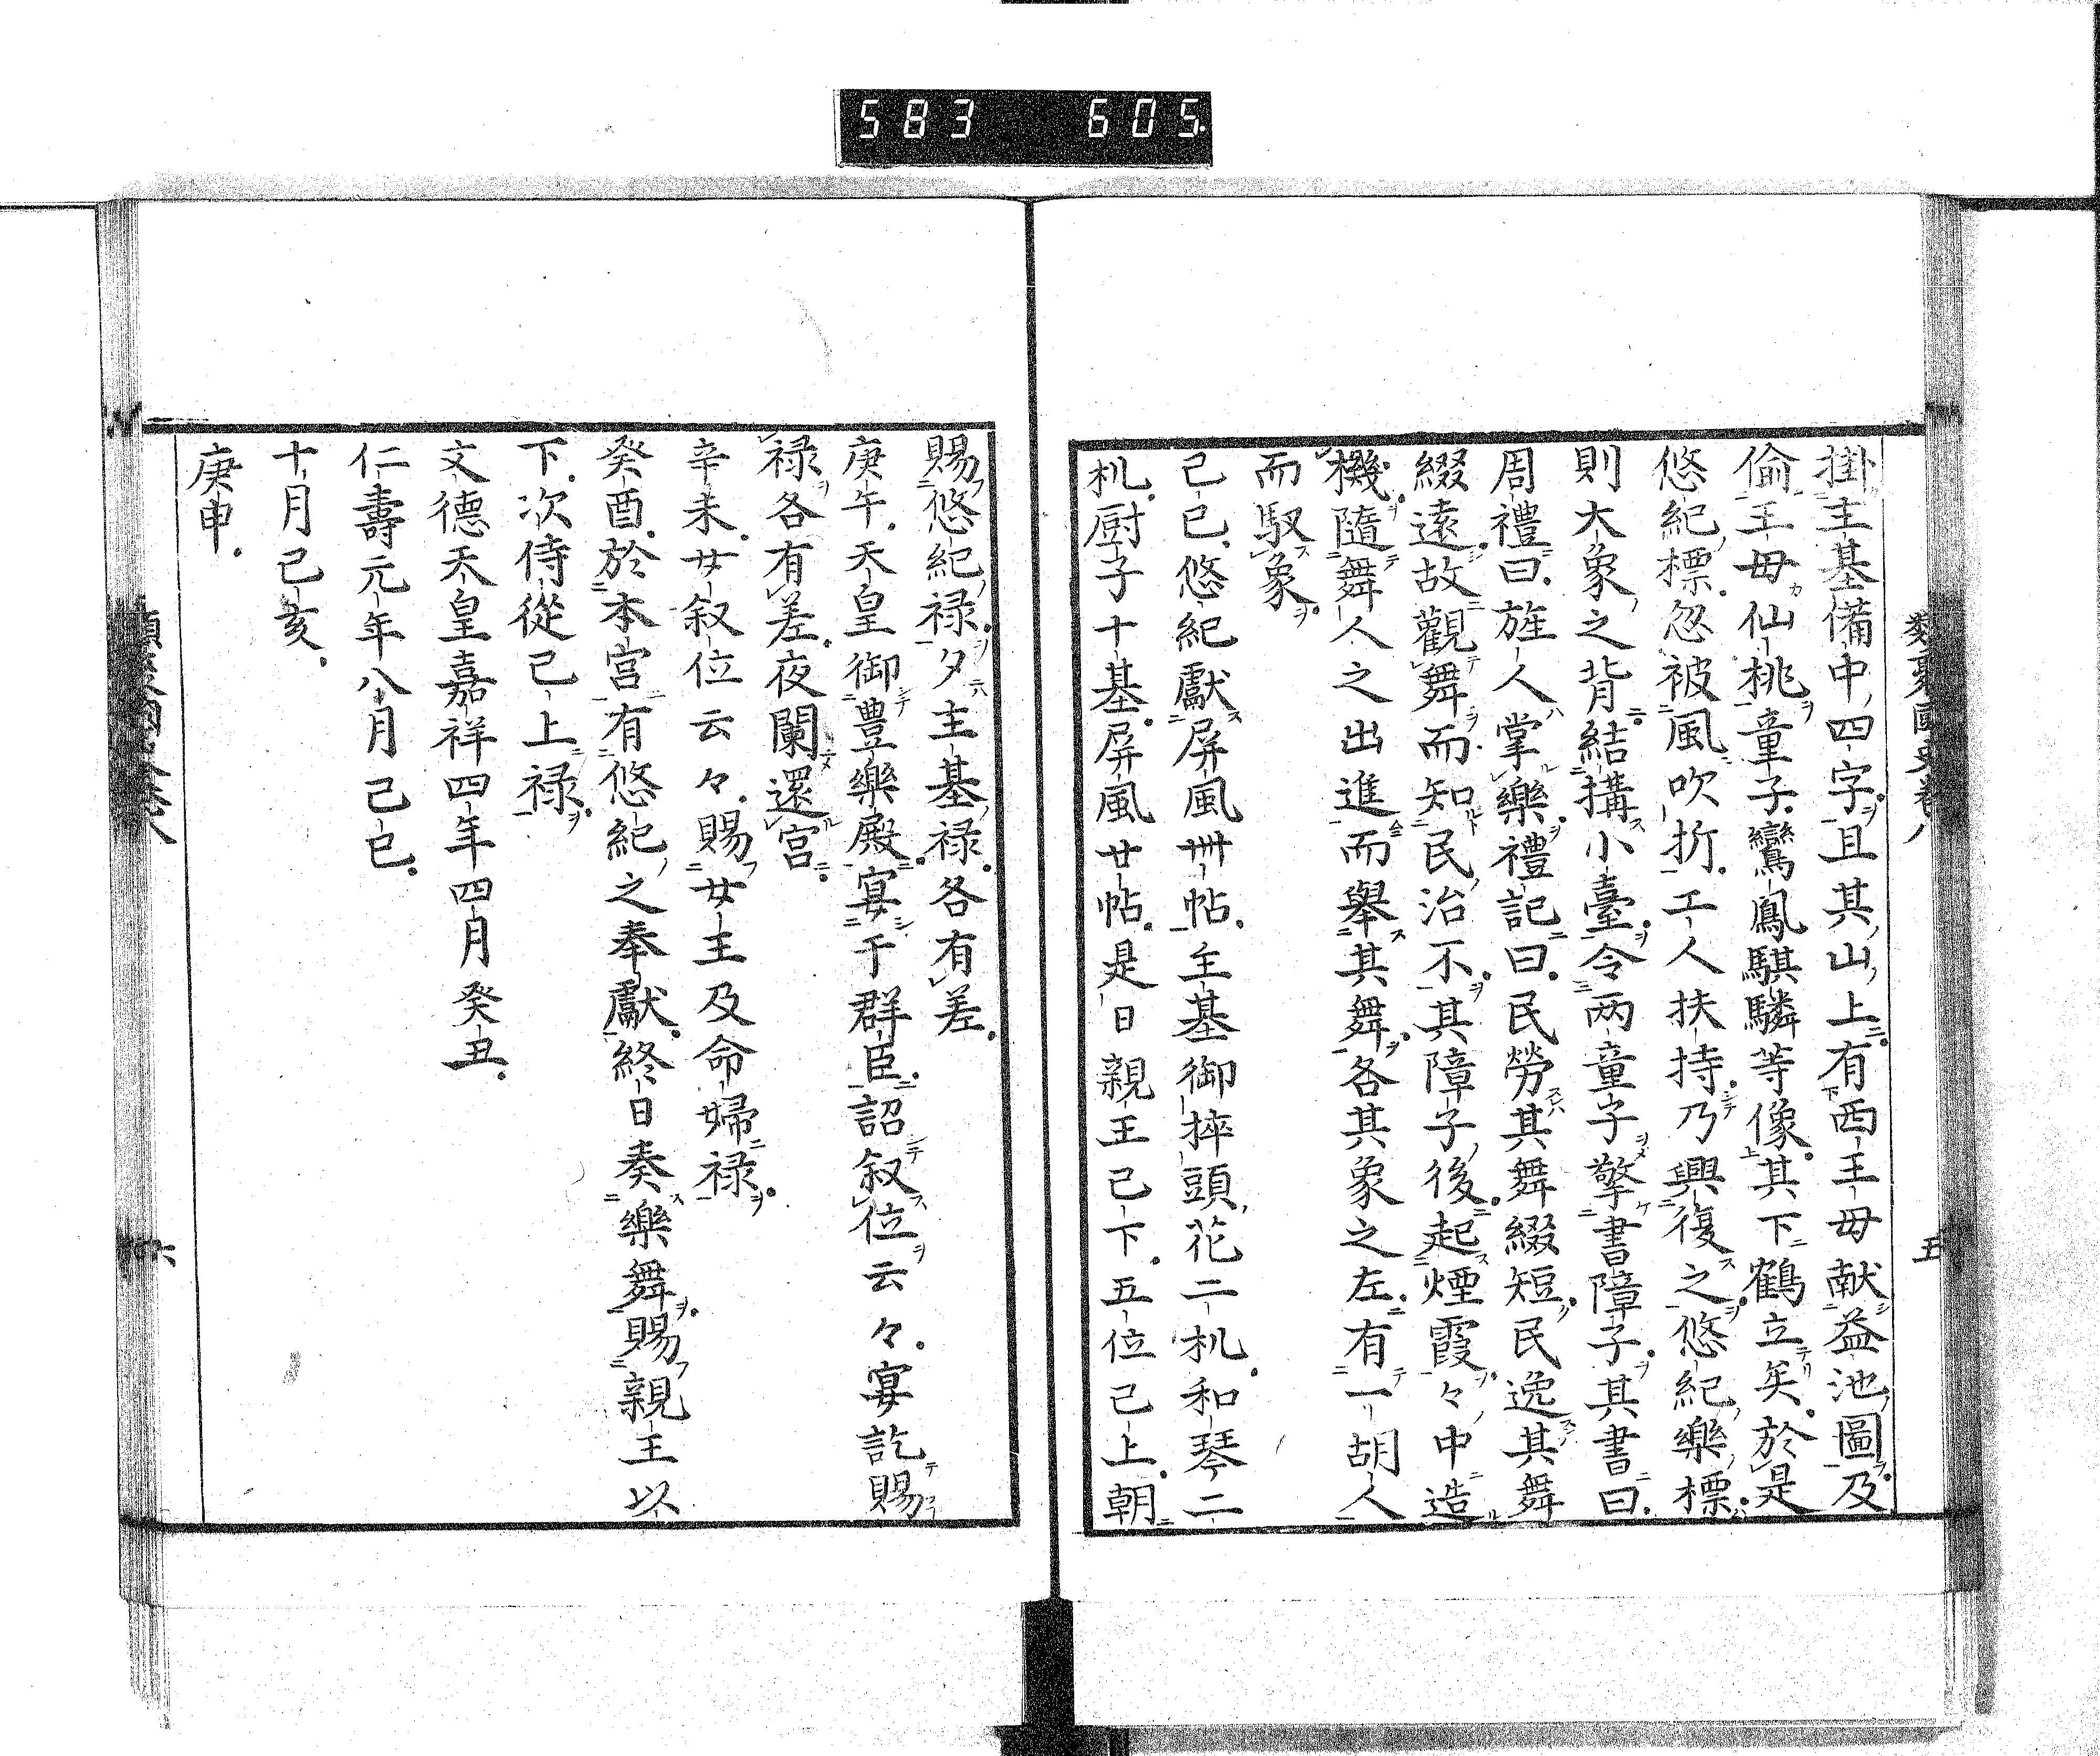 583 605.
類聚國史卷八 五
掛主基備中四字且其山上有西王母献益池圖及
偷王母仙桃童子鸞鳳騏驎等像其下鶴立矣於是
悠紀標忽被風吹折工人扶持乃興復之悠紀樂標
則大象之背結搆小臺令两童子擎書障子其書曰
周禮曰旄人掌樂禮記曰民勞其舞綴短民逸其舞
綴遠故觀舞而知民治不其障子後起煙霞々中造
機隨舞人之出進而舉其舞各其象之左有一胡人
而馭象
己巳悠紀獻屏風卌帖主基御捽頭花二机和琴二
机厨子十基屏風廿帖是日親王已下五位已上朝
賜悠紀禄夕主基禄各有差
庚午天皇御豊樂殿宴于群臣詔叙位云々宴訖賜
禄各有差夜闌還宮
辛未女叙位云々賜女王及命婦禄
癸酉於本宮有悠紀之奉獻終日奏樂舞賜親王以
下次侍從已上禄
文德天皇嘉祥四年四月癸丑
仁壽元年八月己巳
十月己亥
庚申
六